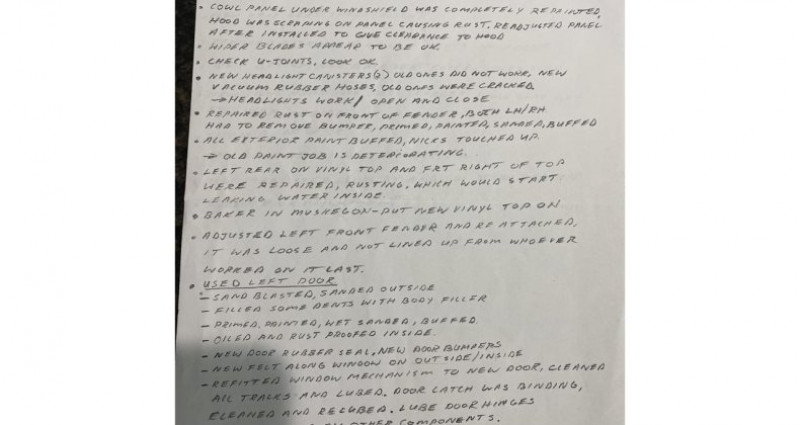 • COWL PANEL UNDER WINDSHIELD WAS COMPLETELY REPAINTED,
HOOD WAS SCRAPING ON PANEL CAUSING RUST. READJUSTED PANEL
AFTER INSTALLED TO GIVE CLEARANCE TO HOOD
• WIPER BLADES APPEAR TO BE OK.
• CHECK U-JOINTS, LOOK OK.
• NEW HEADLIGHT CANISTERS(2) OLD ONES DID NOT WORK, NEW
VACUUM RUBBER HOSES, OLD ONES WERE CRACKED.
→ HEADLIGHTS WORK/ OPEN AND CLOSE
• REPAIRED RUST ON FRONT OF FENDER, BOTH LH/RH
HAD TO REMOVE BUMPER, PRIMED, PAINTED, SANDED, BUFFED
• ALL EXTERIOR PAINT BUFFED, NICKS TOUCHED UP.
→ OLD PAINT JOB IS DETERIORATING.
• LEFT REAR ON VINYL TOP AND FRT RIGHT OF TOP
WERE REPAIRED, RUSTING, WHICH WOULD START
LEAKING WATER INSIDE.
• BAKER IN MUSKEGON-PUT NEW VINYL TOP ON
• ADJUSTED LEFT FRONT FENDER AND RE ATTACHED,
IT WAS LOOSE AND NOT LINED UP FROM WHOEVER
WORKED ON IT LAST.
• USED LEFT DOOR
- SAND BLASTED, SANDED OUTSIDE
- FILLED SOME DENTS WITH BODY FILLER
- PRIMED, PAINTED, WET SANDED, BUFFED.
- OILED AND RUST PROOFED INSIDE.
- NEW DOOR RUBBER SEAL, NEW DOOR BUMPERS
- NEW FELT ALONG WINDOW ON OUTSIDE/INSIDE
- REFITTED WINDOW MECHANISM TO NEW DOOR, CLEANED
ALL TRACKS AND LUBED. DOOR CATCH WAS BINDING,
CLEANED AND RELUBED. LUBE DOOR HINGES
OTHER COMPONENTS.